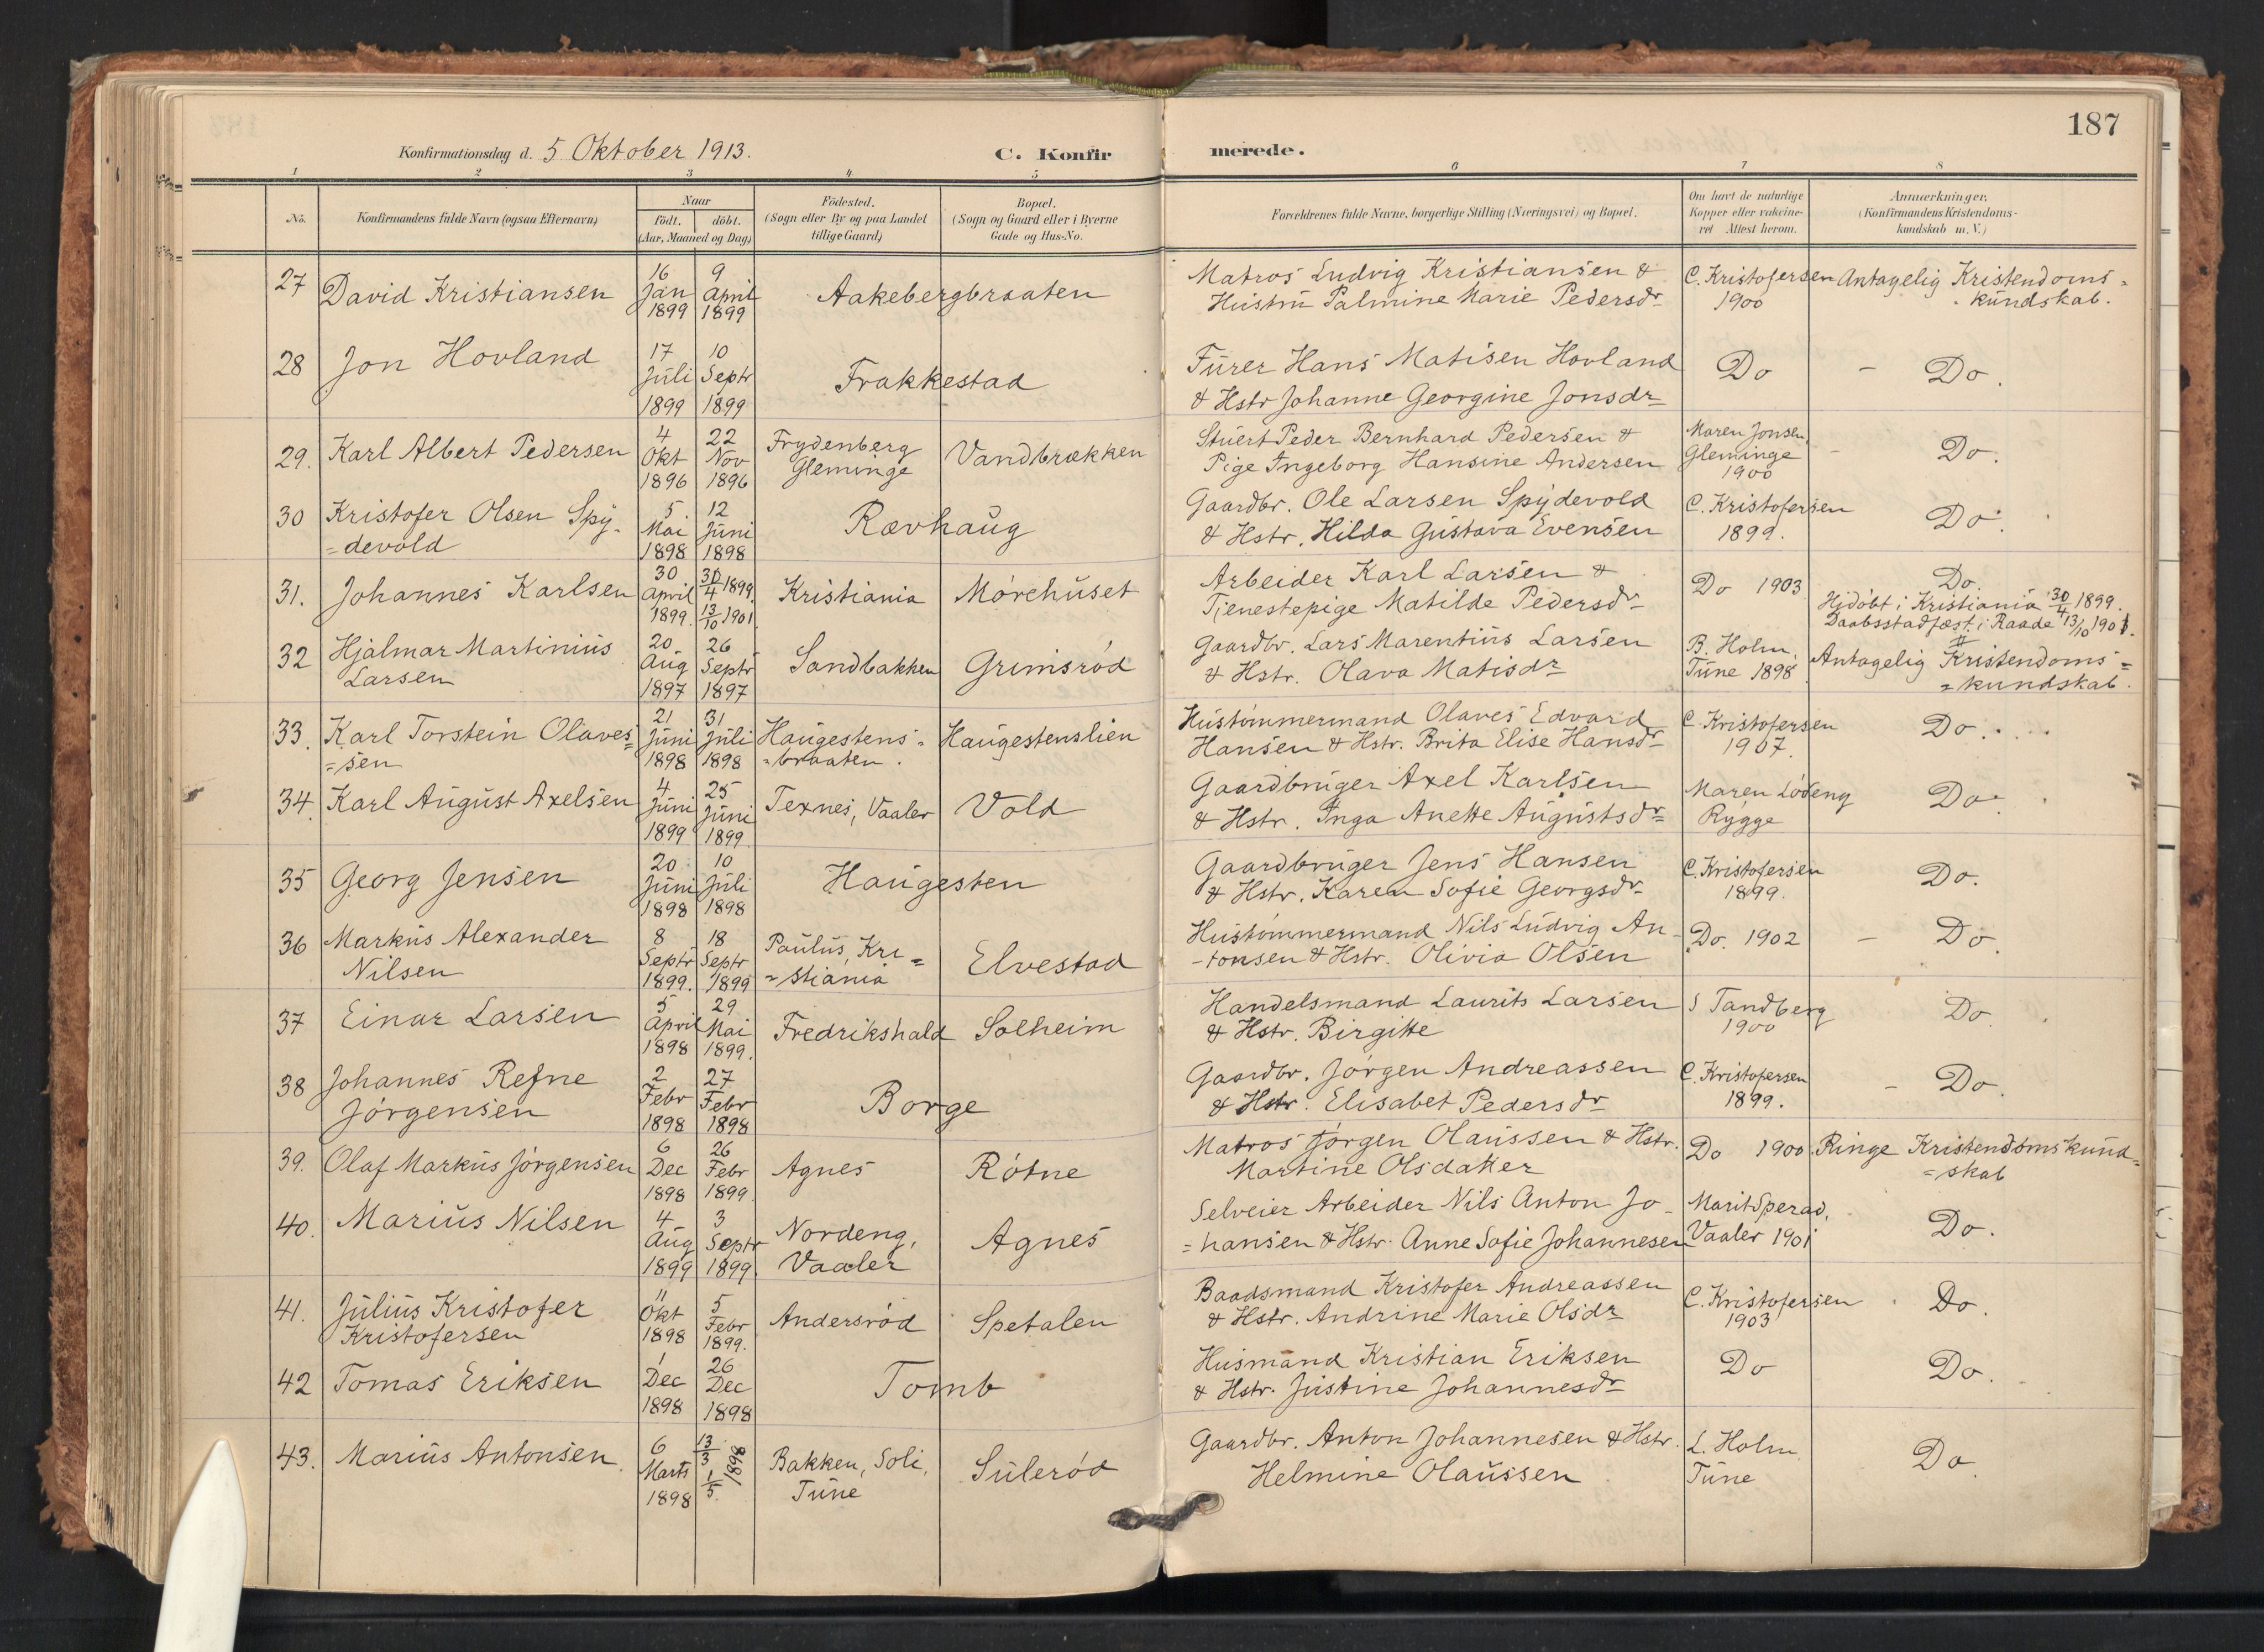 187
Konfirmationsdag d. 5 Oktober 1913. C. Konfirmerede.
1 2 3 4 5 6 7 8
No. Konfirmandens fulde Navn (ogsaa Efternavn) Naar født. døbt. (Aar, Maaned og Dag) Fødested. (Sogn eller By og paa Landet tillige Gaard) Bopæl. (Sogn og Gaard eller i Byerne Gade og Hus-No. Forældrenes fulde Navne, borgerlige Stilling (Næringsvei) og Bopæl. Om havt de naturlige Kopper eller vakcineret Attest herom. Anmærkninger. (Konfirmandens Kristendomskundskab m. V.)
27 David Kristiansen 16 Jan 1899 9 April 1899 Aakebergbraaten Matros Ludvig Kristiansen & Hustru Palmine Marie Pedersdr C. Kristofersen 1900 Antagelig Kristendoms=kundskab.
28 Jon Hovland 17 Juli 1899 10 Septr 1899 Frakkestad Furer Hans Matisen Hovland & Hstr Johanne Georgine Jonsdr Do – Do.
29. Karl Albert Pedersen 4 Okt 1896 22 Nov 1896 Frydenberg Gleminge Vandbrækken Stuert Peder Bernhard Pedersen & Pige Ingeborg Hansine Andersen Maren Jonsen, Gleminge 1900 – Do.
30 Kristofer Olsen Spy=devold 5 Mai 1898 12 Juni 1898 Rævhaug Gaardbr. Ole Larsen Spydevold & Hstr. Hilda Gustava Evensen C. Kristofersen 1899. Do.
31. Johannes Karlsen 30 April 1899. 30/4 1899. 13/10 1901. Kristiania Mørehuset Arbeider Karl Larsen & Tjenestepige Matilde Pedersdr Do 1903 Do. Hjdøbt i Kristiania 30/4 1899. Daabsstadfæst. i Raade 13/10 1901.
32 Hjalmar Martinius Larsen 20 Aug 1897 26 Septr 1897 Sandbakken Grimsrød Gaardbr. Lars Marentius Larsen & Hstr. Olava Matisdr B. Holm, Tune 1898 Antagelig Kristendoms=kundskab.
33. Karl Torstein Olaves=sen 21 Juni 1898 31 Juli 1898 Haugestens=braaten. Haugestenslien Hustømmermand Olaves Edvard Hansen & Hstr. Brita Elise Hansdr C. Kristofersen 1907. Do.
34. Karl August Axelsen 4 Juni 1899 25 Juni 1899. Texnes, Vaaler Vold Gaardbruger Axel Karlsen & Hstr. Inga Anette Augustsdr Maren Lødeng Rygge Do.
35 Georg Jensen 20 Juni 1898 10 Juli 1898 Haugesten Gaardbruger Jens Hansen & Hstr. Karen Sofie Georgsdr C. Kristofersen 1899. Do.
36 Markus Alexander Nilsen 8 Septr 1899. 18 Septr 1899 Paulus, Kri=stiania Elvestad Hustømmermand Nils Ludvig An-tonsen & Hstr. Olivia Olsen Do. 1902 – Do.
37 Einar Larsen 5 April 1898 29 Mai 1899. Fredrikshald Solheim Handelsmand Laurits Larsen & Hstr. Birgitte S Tandberg 1900 Do.
38 Johannes Refne Jørgensen 2 Febr 1898 27 Febr 1898 Borge Gaardbr. Jørgen Andreassen & Hstr. Elisabet Pedersdr C. Kristofersen 1899. – Do.
39. Olaf Markus Jørgensen 6 Dec 1898 26 Febr 1899. Agnes Røtne Matros Jørgen Olaussen & Hstr. Martine Olsdatter Do 1900. Ringe Kristendomskund=skab
40. Marius Nilsen 4 Aug 1899 3 Septr 1899. Nordeng, Vaaler Agnes Selveier Arbeider Nils Anton Jo=hansen & Hstr. Anne Sofie Johannesen Marit Sperad, Vaaler 1901 Do.
41. Julius Kristofer Kristofersen 11 Okt 1898 5 Febr 1899. Andersrød Spetalen Baadsmand Kristofer Andreassen & Hstr. Andrine Marie Olsdr C. Kristofersen 1903 Do.
42 Tomas Eriksen 1 Dec 1898 26 Dec 1898 Tomb Husmand Kristian Eriksen & Hstr. Justine Johannesdr Do Do.
43. Marius Antonsen 6 Marts 1898 13/3 1/5 1898 Bakken, Soli, Tune Sulerød Gaardbr. Anton Johannesen & Hstr. Helmine Olaussen L. Holm Tune Do